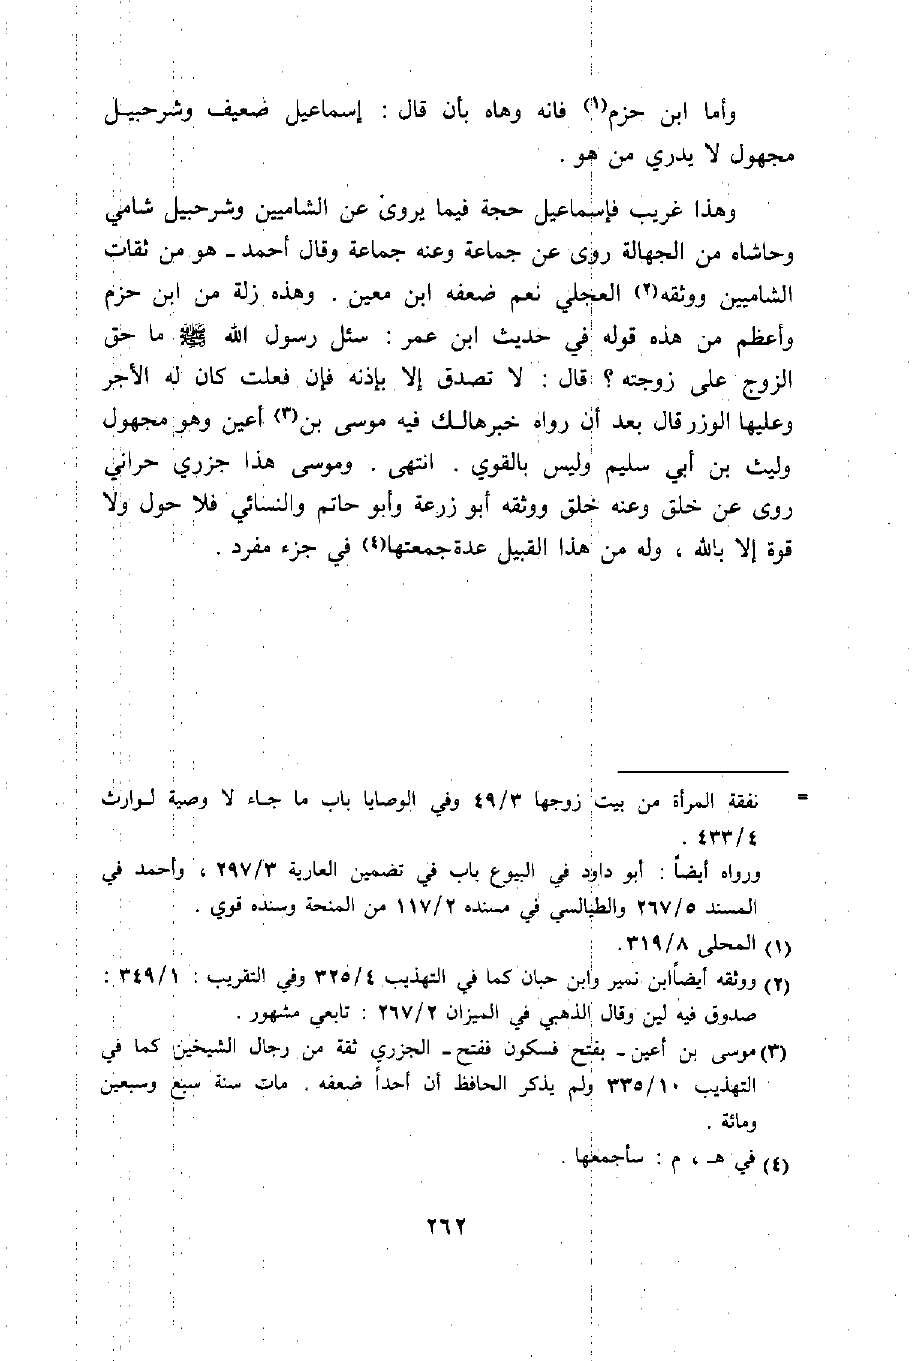 وأما ابن حزم(١) فانه وهاه بأن قال : إسماعيل ضعيف وشرحبيـل
مجهول لا يدري من هو .
وهذا غريب فإسماعيل حجة فيما يروى عن الشاميين وشرحبيل شامي
وحاشاه من الجهالة روى عن جماعة وعنه جماعة وقال أحمد ـ هو من ثقات
الشاميين ووثقه(٢) العجلي نعم ضعفه ابن معين . وهذه زلة من ابن حزم
وأعظم من هذه قوله في حديث ابن عمر : سئل رسول الله ﷺ ما حق
الزوج على زوجته ؟ قال : لا تصدق إلا بإذنه فإن فعلت كان له الأجر
وعليها الوزر قال بعد أن رواه خبرهالـك فيه موسى بن(٣) أعين وهو مجهول
وليث بن أبي سليم وليس بالقوي . انتهى . وموسى هذا جزري حراني
روى عن خلق وعنه خلق ووثقه أبو زرعة وأبو حاتم والنسائي فلا حول ولا
قوة إلا بالله ، وله من هذا القبيل عدةجمعتها(٤) في جزء مفرد .
= نفقة المرأة من بيت زوجها ٤٩/٣ وفي الوصايا باب ما جـاء لا وصية لـوارث
٤٣٣/٤ .
ورواه أيضاً : أبو داود في البيوع باب في تضمين العارية ٢٩٧/٣ ، وأحمد في
المسند ٢٦٧/٥ والطيالسي في مسنده ١١٧/٢ من المنحة وسنده قوي .
(١) المحلى ٣١٩/٨.
(٢) ووثقه أيضاًابن نمير وابن حبان كما في التهذيب ٣٢٥/٤ وفي التقريب : ٣٤٩/١ :
صدوق فيه لين وقال الذهبي في الميزان ٢٦٧/٢ : تابعي مشهور .
(٣) موسى بن أعين ـ بفتح فسكون ففتح ـ الجزري ثقة من رجال الشيخين كما في
التهذيب ٣٣٥/١٠ ولم يذكر الحافظ أن أحداً ضعفه . مات سنة سبع وسبعين
ومائة .
(٤) في هـ ، م : سأجمعها .
٢٦٢